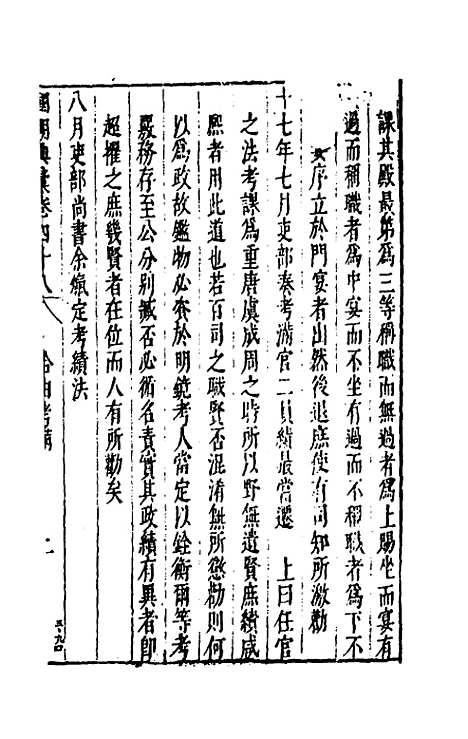 課其殿最第爲三等稱職而無過者爲上賜坐而宴有
過而稱職者爲中宴而不坐有過而不稱職者爲下不
序立於門宴者出然後退庶使有司知所激勸
十七年七月吏部奏考滿官二員績最當遷　上曰任官
之法考課爲重唐虞成周之時所以野無遺賢庶績咸
熙者用此道也若百司之職賢否混淆無所懲勸則何
以爲政故鑑物必資於明鏡考人當定以銓衡爾等考
覈務存至公分別臧否必循名責實其政績有異者即
超擢之庶幾賢者在位而人有所勸矣
八月吏部尚書余熂定考績法
國朝典彙卷四十八
考滿